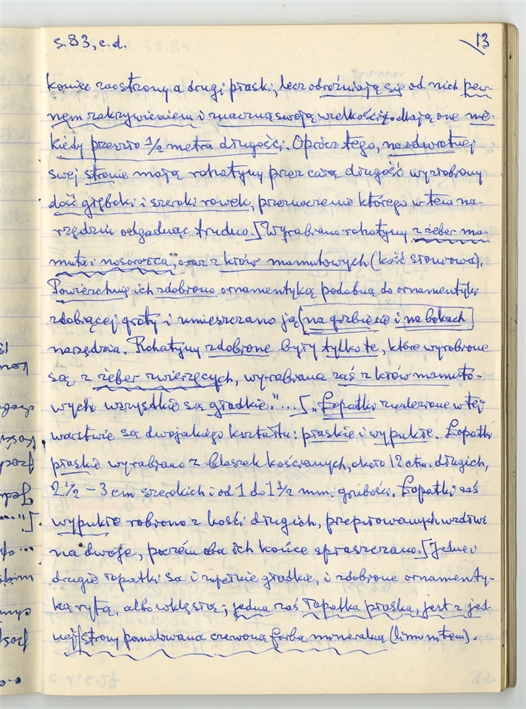 s. 83, c.d.
13
koniec zaostrzony a drugi płaski, lecz odróżniają się od nich pew-
nym zakrzywieniem i znaczną swoją wielkością. Mają one nie-
kiedy przeszło 1/2 metra długości. Oprócz tego, na odwrotnej
swej stronie mają rohatyny przez całą długość wyrobiony
dość głęboki i szeroki rowek, przeznaczenie którego w tem na-
rzędziu odgadnąć trudno. Wyrabiano rohatyny z żeber ma-
muta i nosorożca, oraz z kłów mamutowych (kość słoniowa).
Powierzchnię ich zdobiono ornamentyką podobną do ornamentyki
zdobiącej groty i umieszczano ją [na grzbiecie i na bokach]
narzędzia. Rohatyny zdobione były tylko te, które wyrobione
są z żeber zwierzęcych, wyrabiane zaś z kłów mamuto-
wych wszystkie są gładkie."... ["Łopatki znalezione w tej
warstwie są dwojakiego kształtu: płaskie i wypukłe. Łopatki
płaskie wyrabiano z blaszek kościanych, około 12 ctm. długich,
2 1/2 - 3 cm szerokich i od 1 do 1 1/2 mm. grubości. Łopatki zaś
wypukłe robiono z kości długich, przepiłowanych wzdłuż
na dwoje, poczem oba ich końce spłaszczano. [Jedne i
drugie łopatki są i zupełnie gładkie, i zdobione ornamenty-
ką rytą, albo wklęsłą; jedna zaś łopatka płaska, jest z jed-
nej strony pomalowana czerwoną farbą mineralną (limonitem).